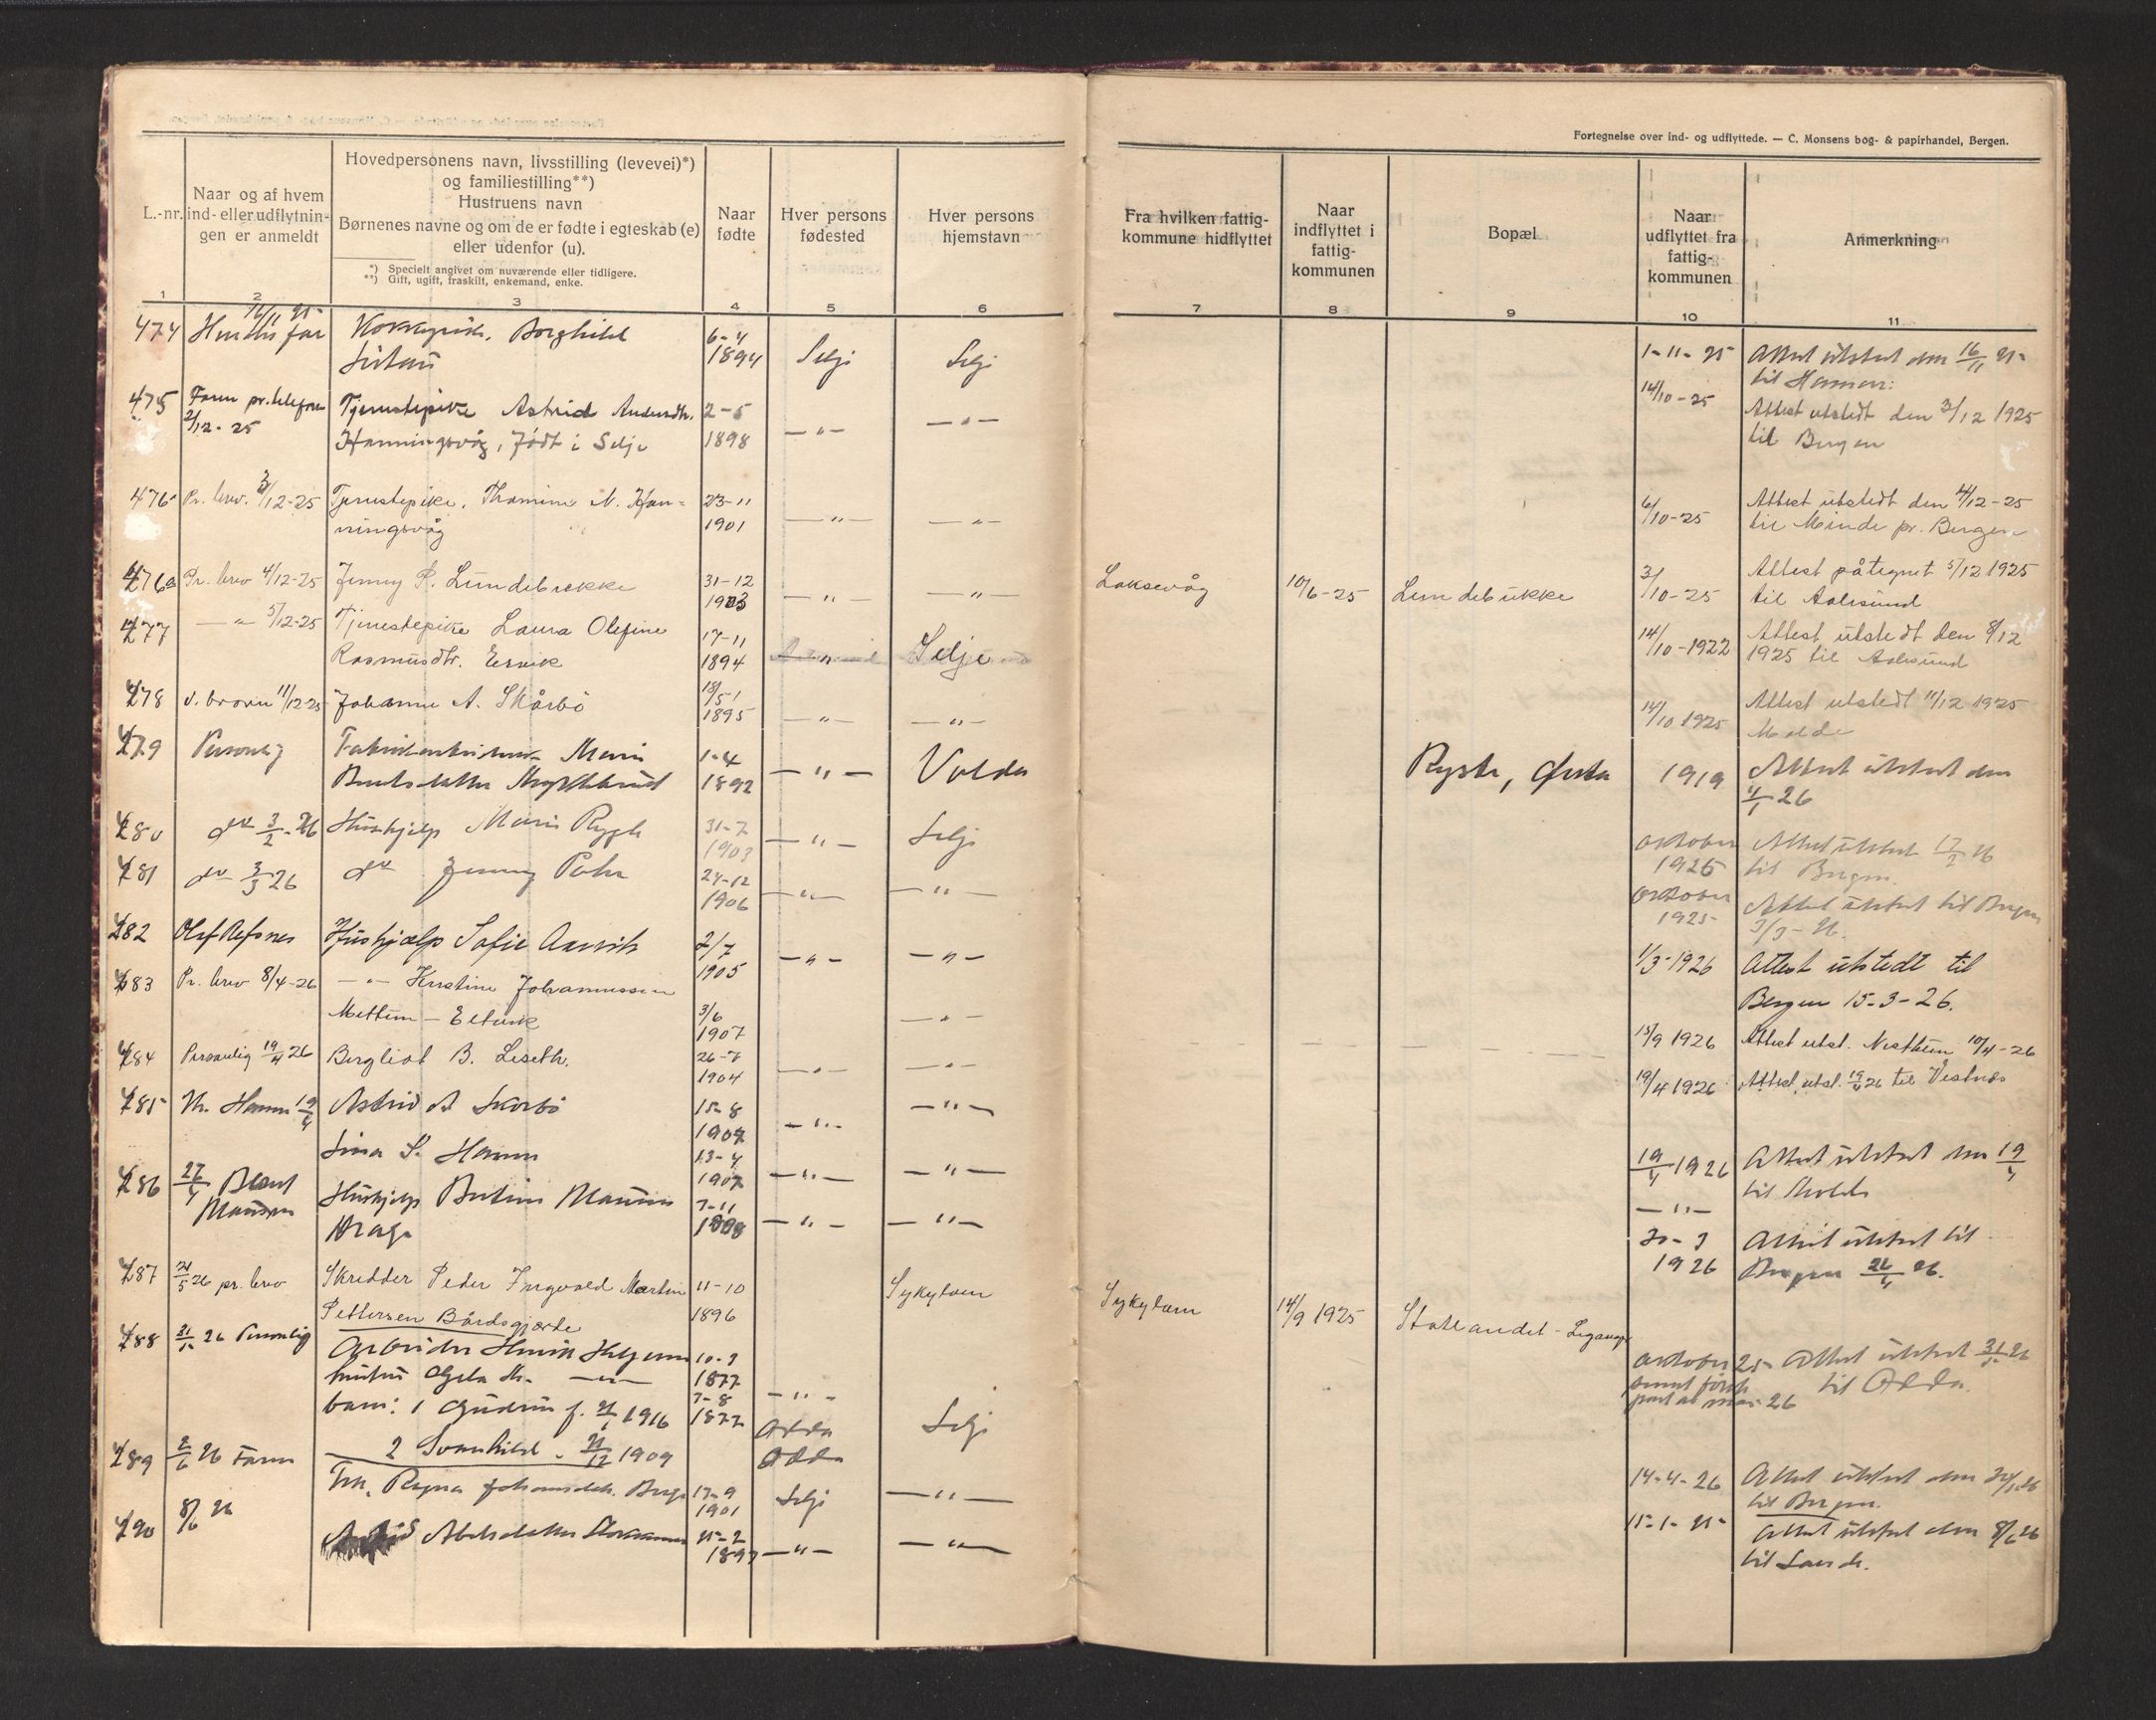 Fortegnelse over ind- og udflyttede. — C. Monsens bog- & papirhandel, Bergen.
L.-nr.
Naar og af hvem
ind- eller udflytnin-
gen er anmeldt
Hovedpersonens navn, livsstilling (levevei)*)
og familiestilling**)
Hustruens navn
Børnenes navne og om de er fødte i egteskab (e)
eller udenfor (u).
*) Specielt angivet om nuværende eller tidligere.
**) Gift, ugift, fraskilt, enkemand, enke.
Naar
fødte
Hver persons
fødested
Hver persons
hjemstavn
Fra hvilken fattig-
kommune hidflyttet
Naar
indflyttet i
fattig-
kommunen
Bopæl
Naar
udflyttet fra
fattig-
kommunen
Anmerkning
1 2 3 4 5 6 7 8 9 10 11
474 Borghild 6-4
1894 Selje Selje 1-11-25 Attest utstedt den 16/11 25
475 Faren pr. telefon Tjenestepike Astrid 2-5 14/10-25 Attest utstedt den 3/12 1925
2/12-25 Hanningsvåg, Født i Selje 1898 —„— —„— til Bergen
476 Pr. brev. 3/12-25 Tjenestepike. Thomine N. Han- 23-11 6/10-25 Attest utstedt den 4/12-25
ningsvåg 1901 —„— —„— til Minde pr. Bergen
476a Pr. brev 4/12-25 Jenny R. Lundebrekke 31-12 Laksevåg 10/6-25 Lundebrekke 3/10-25 Attest påtegnet 5/12 1925
1903 —„— —„— til Aalesund
477 —„— 5/12-25 Tjenestepike Laura Olefine 17-11 14/10-1922 Attest utstedt den 8/12
Rasmusdtr. Ervik 1894 —„— Selje 1925 til Aalesund
478 11/12-25 Johanne A. Skårbö 18/5 14/10 1925 Attest utstedt 11/12 1925
1895 —„— —„— Molde
479 Personlig Marie 1-4 Ørsta 1919 Attest utstedt den
1892 —„— Volda 4/1 26
480 do 3/2-26 Hushjelp Marie Rygh 31-7 oktober Attest utstedt 17/2 26
1903 —„— Selje 1925 til Bergen
481 do 3/3 26 do Jenny 24-12 oktober Attest utstedt til Bergen
1906 —„— —„— 1925 3/3-26.
482 Olaf Refsnes Hushjælp Sofie 2/7 1/3-1926 Attest utstedt til
1905 —„— —„— Bergen 15-3-26.
483 Pr. brev 8/4-26 —„— Kristine Johannessen
3/6 15/9 1926 Attest utst. Nesttun 10/4-26
1907 —„—
484 Personlig 19/4 26 Bergliot B. Leseth. 26-7 19/4 1926 Attest utst. 19/4 26 til Vestnes
1904 —„— —„—
485 Astrid A 15-8
1907 —„— —„—
13-4 19/4 1926 Attest utstedt den 19/4
1907 —„— —„— til Molde
486 27/4 Hushjelp 7-11 —„—
—„— —„— 30-3 Attest utstedt til
1926 Bergen 26/4 26.
487 21/5 26 pr. brev Skredder Peder Ingvald Martin 11-10 Sykylven Sykylven 14/9 1925 Statlandet-Leganger
Pettersen Bårdsgjærde 1896
488 31/5 26 Personlig Arbeider 10-3 oktober 25 Attest utstedt 31/5 26
hustru 1877 til Odda.
7-8 —„—
barn: 1 Gudrun f. 1916 1877 Odda Selje mai 26
2 Svanhild 1909 Odda
489 2/6 26 Faren Frk. Ragna 17-9 14-4-26 Attest utstedt den
1901 Selje —„— til Bergen.
490 8/6 26 Abelsdatter 25-2 15-1-25 Attest utstedt den 8/6 26
1897 —„— —„— til